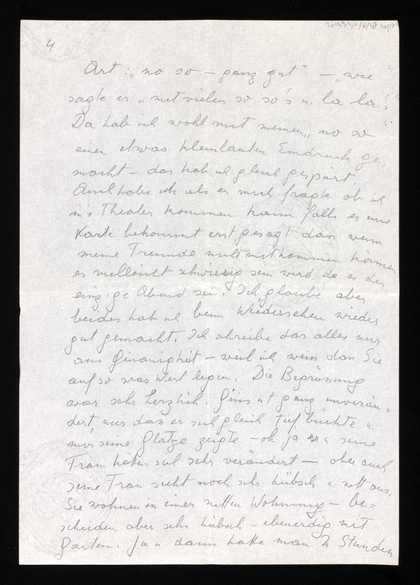 4
Art: „no so – ganz gut" – „wie
sagte er „mit vielen so so's u. la la!
Da hab ich wohl mit meinem „no so
einen etwas kleinlauten Eindruck ge-
macht – das hab ich gleich gespürt
Auch habe ich als er mich fragte ob ich
ins Theater kommen kann falls er eine
Karte bekommt erst gesagt dass wenn
meine Freunde nicht mitkommen können
es vielleicht schwierig sein wird da es der
einzige Abend sei. Ich glaube aber
beides hab ich beim Wiedersehen wieder
gut gemacht. Ich schreibe das alles nur
aus Genauigkeit – weil ich weiss dass Sie
auf so was Wert legen. Die Begrüssung
war sehr herzlich. ist ganz unverän-
dert, nur dass er sich gleich tief bückte u.
mir seine Glatze zeigte – oh ja seine
Frau haben sich sehr verändert – aber auch
seine Frau sieht noch sehr hübsch u. nett aus.
Sie wohnen in einer netten Wohnung – be-
scheiden aber sehr hübsch – ebenerdig mit
Garten. Ja u. dann hatte man 2 Stunden